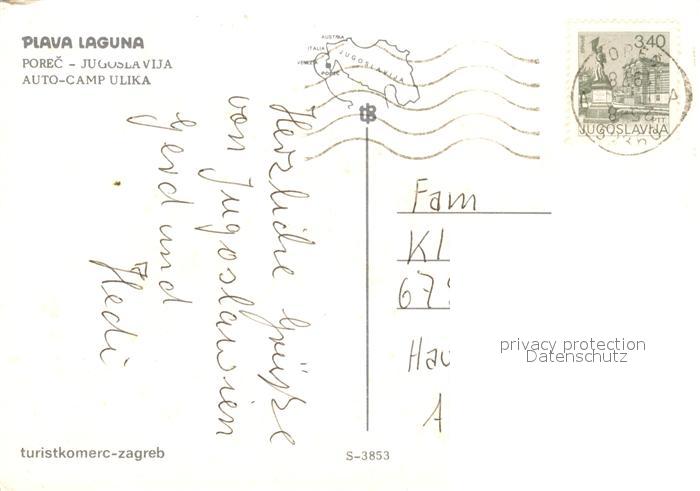 PLAVA LAGUNA
POREČ – JUGOSLAVIJA
AUTO-CAMP ULIKA
AUSTRIA
ITALIA
JUGOSLAVIJA
POREČ
3,40
JUGOSLAVIJA
Herzliche Grüße
von Jugoslawien
Gerd und
Hedi
Fam
Kl
67
Hau
A
privacy protection
Datenschutz
turistkomerc-zagreb
S-3853